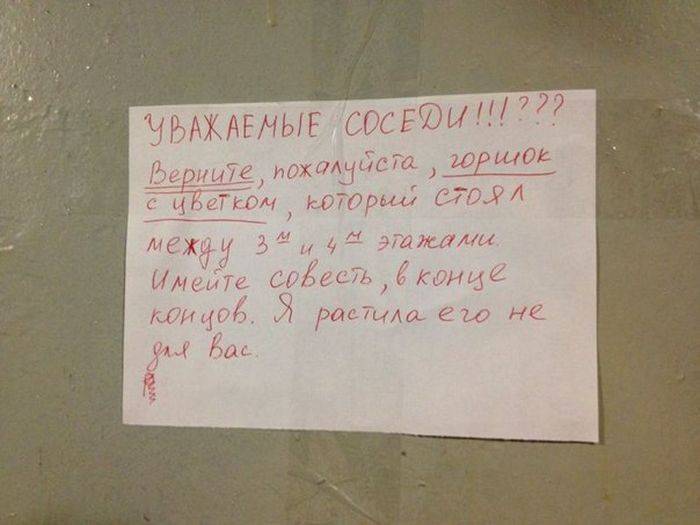 УВАЖАЕМЫЕ СОСЕДИ!!!???
Верните, пожалуйста, горшок
с цветком, который стоял
между 3м и 4м этажами.
Имейте совесть, в конце
концов. Я растила его не
для вас.